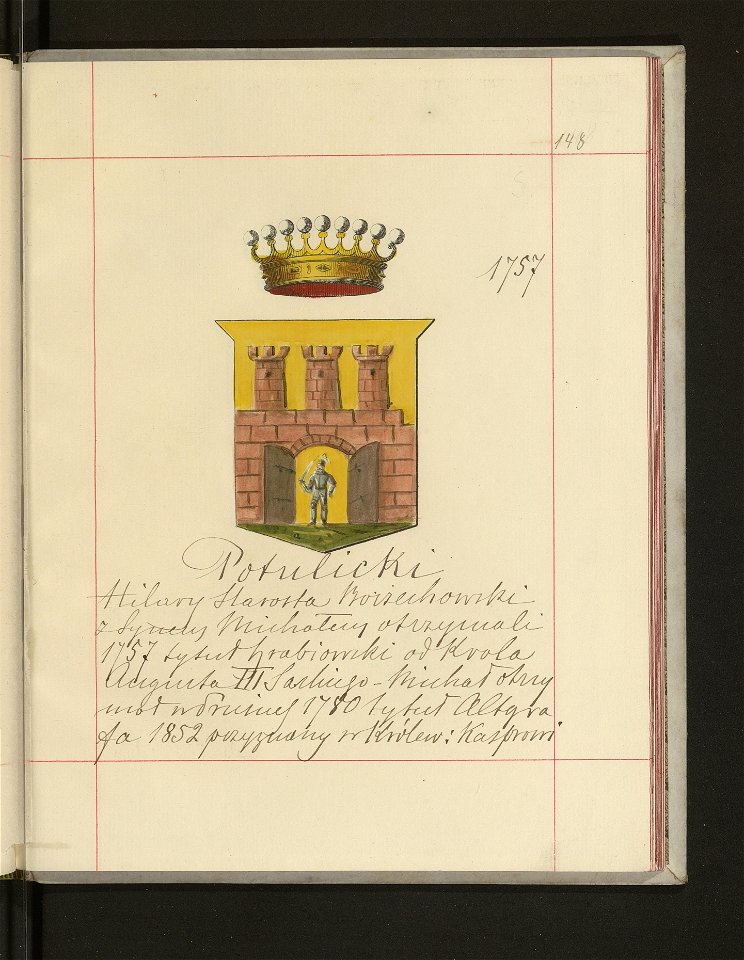 148
1757
Potulicki
Hilary Starosta Borzechowski
z Synem Michałem otrzymali
1757 tytuł hrabiowski od Krola
Augusta III Saskiego - Michał otrzy
mał w Prusiech 1780 tytuł Altgra
fa 1852 przyznany w Królew: Kasprowi